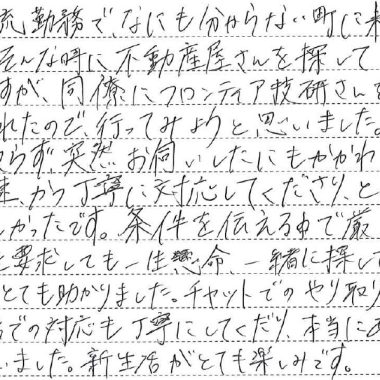 流勤務で、なにも分からない町に来
そんな時に不動産屋さんを探して
すが、同僚にフロンティア技研さんを
れたので、行ってみようと思いました。
らず、突然お伺いしたにもかかわ
から丁寧に対応してくださり、と
しかったです。条件を伝える中で厳
と要求しても一生懸命、一緒に探して
とても助かりました。チャットでのやり取り
での対応も丁寧にしてくだり、本当にあ
いました。新生活がとても楽しみです。